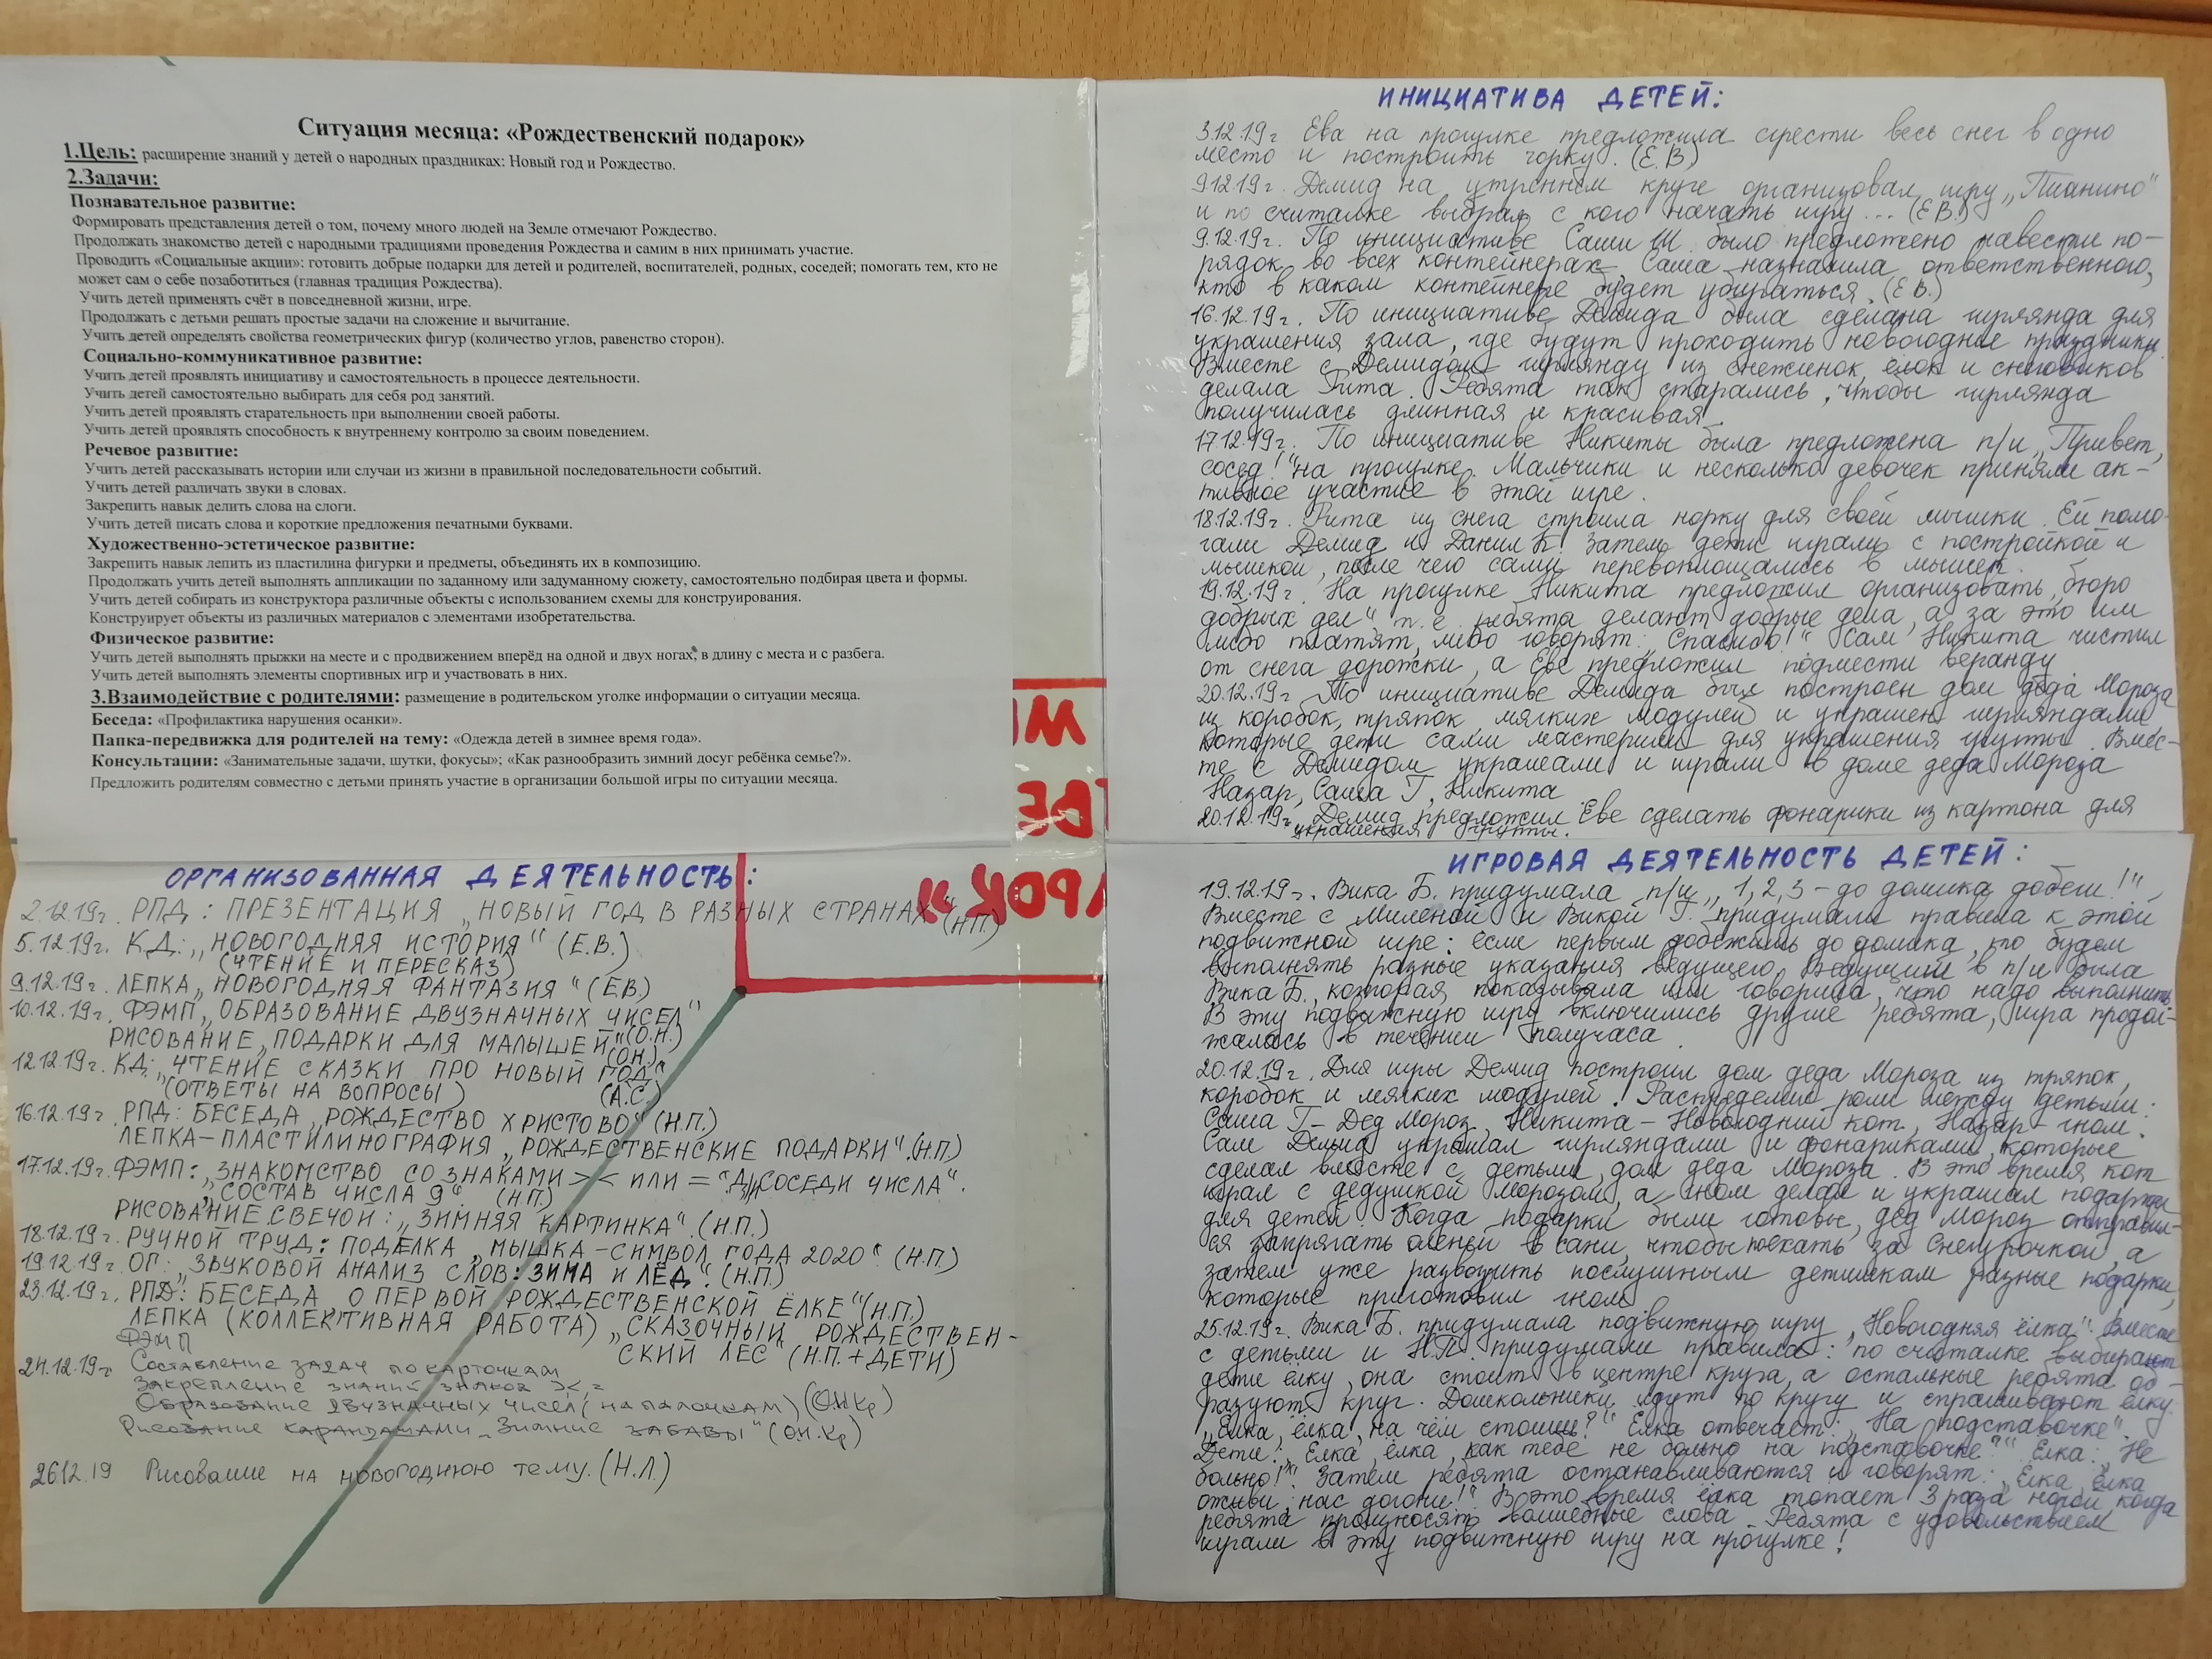 Ситуация месяца: «Рождественский подарок»
1.Цель: расширение знаний у детей о народных праздниках: Новый год и Рождество.
2.Задачи:
Познавательное развитие:
Формировать представления детей о том, почему много людей на Земле отмечают Рождество.
Продолжать знакомство детей с народными традициями проведения Рождества и самим в них принимать участие.
Проводить «Социальные акции»: готовить добрые подарки для детей и родителей, воспитателей, родных, соседей; помогать тем, кто не
может сам о себе позаботиться (главная традиция Рождества).
Учить детей применять счёт в повседневной жизни, игре.
Продолжать с детьми решать простые задачи на сложение и вычитание.
Учить детей определять свойства геометрических фигур (количество углов, равенство сторон).
Социально-коммуникативное развитие:
Учить детей проявлять инициативу и самостоятельность в процессе деятельности.
Учить детей самостоятельно выбирать для себя род занятий.
Учить детей проявлять старательность при выполнении своей работы.
Учить детей проявлять способность к внутреннему контролю за своим поведением.
Речевое развитие:
Учить детей рассказывать истории или случаи из жизни в правильной последовательности событий.
Учить детей различать звуки в словах.
Закрепить навык делить слова на слоги.
Учить детей писать слова и короткие предложения печатными буквами.
Художественно-эстетическое развитие:
Закрепить навык лепить из пластилина фигурки и предметы, объединять их в композицию.
Продолжать учить детей выполнять аппликации по заданному или задуманному сюжету, самостоятельно подбирая цвета и формы.
Учить детей собирать из конструктора различные объекты с использованием схемы для конструирования.
Конструирует объекты из различных материалов с элементами изобретательства.
Физическое развитие:
Учить детей выполнять прыжки на месте и с продвижением вперёд на одной и двух ногах, в длину с места и с разбега.
Учить детей выполнять элементы спортивных игр и участвовать в них.
3.Взаимодействие с родителями: размещение в родительском уголке информации о ситуации месяца.
Беседа: «Профилактика нарушения осанки».
Папка-передвижка для родителей на тему: «Одежда детей в зимнее время года».
Консультации: «Занимательные задачи, шутки, фокусы»; «Как разнообразить зимний досуг ребёнка семье?».
Предложить родителям совместно с детьми принять участие в организации большой игры по ситуации месяца.
ОРГАНИЗОВАННАЯ ДЕЯТЕЛЬНОСТЬ:
2.12.19г. РПД: ПРЕЗЕНТАЦИЯ „НОВЫЙ ГОД В РАЗНЫХ СТРАНАХ" (Н.П.)
5.12.19г. КД: „НОВОГОДНЯЯ ИСТОРИЯ" (Е.В.)
(ЧТЕНИЕ И ПЕРЕСКАЗ)
9.12.19г. ЛЕПКА „НОВОГОДНЯЯ ФАНТАЗИЯ" (Е.В.)
10.12.19г. ФЭМП „ОБРАЗОВАНИЕ ДВУЗНАЧНЫХ ЧИСЕЛ"
(О.Н.)
РИСОВАНИЕ „ПОДАРКИ ДЛЯ МАЛЫШЕЙ"
(О.Н.)
12.12.19г. КД: „ЧТЕНИЕ СКАЗКИ ПРО НОВЫЙ ГОД"
(ОТВЕТЫ НА ВОПРОСЫ) (А.С.)
16.12.19г. РПД: БЕСЕДА „РОЖДЕСТВО ХРИСТОВО" (Н.П.)
ЛЕПКА-ПЛАСТИЛИНОГРАФИЯ „РОЖДЕСТВЕНСКИЕ ПОДАРКИ". (Н.П.)
17.12.19г. ФЭМП: „ЗНАКОМСТВО СО ЗНАКАМИ > < ИЛИ = " Д/И „СОСЕДИ ЧИСЛА".
„СОСТАВ ЧИСЛА 9". (Н.П.)
РИСОВАНИЕ СВЕЧОЙ: „ЗИМНЯЯ КАРТИНКА". (Н.П.)
18.12.19г. РУЧНОЙ ТРУД: ПОДЕЛКА „МЫШКА-СИМВОЛ ГОДА 2020" (Н.П.)
19.12.19г. ОГ: „ЗВУКОВОЙ АНАЛИЗ СЛОВ: ЗИМА И ЛЁД". (Н.П.)
23.12.19г. РПД: БЕСЕДА „О ПЕРВОЙ РОЖДЕСТВЕНСКОЙ ЁЛКЕ" (Н.П.)
ЛЕПКА (КОЛЛЕКТИВНАЯ РАБОТА) „СКАЗОЧНЫЙ РОЖДЕСТВЕН-
СКИЙ ЛЕС" (Н.П.+ДЕТИ)
ФЭМП
24.12.19г Составление задач по карточкам
Закрепление знаний знаков ><,=
Образование двузначных чисел (на палочкам) (О.Н.Кр)
Рисование карандашами „Зимние забавы" (О.Н.Кр)
26.12.19 Рисование на новогоднюю тему. (Н.Л.)
ИНИЦИАТИВА ДЕТЕЙ:
3.12.19г Ева на прогулке предложила сгрести весь снег в одно
место и построить горку. (Е.В)
9.12.19г. Демид на утреннем круге организовал игру „Пианино"
и по считалке выбрал с кого начать игру... (Е.В.)
9.12.19г. По инициативе Саши Ш. было предложено навести по-
рядок во всех контейнерах, Саша назначила ответственного,
кто в каком контейнере будет убираться. (Е.В.)
16.12.19г. По инициативе Демида была сделана гирлянда для
украшения зала, где будут проходить новогодние праздники.
Вместе с Демидом гирлянду из снежинок, ёлок и снеговиков
делала Рита. Ребята так старались, чтобы гирлянда
получилась длинная и красивая.
17.12.19г. По инициативе Никиты была предложена п/и „Привет,
сосед!" на прогулке. Мальчики и несколько девочек приняли ак-
тивное участие в этой игре.
18.12.19г. Рита из снега строила норку для своей мышки. Ей помо-
гали Демид и Данил К. Затем дети играли с постройкой и
мышкой, после чего сами перевоплощались в мышек.
19.12.19г. На прогулке Никита предложил организовать „бюро
добрых дел" т.е. ребята делают добрые дела, а за это им
либо платят, либо говорят: „Спасибо!" Сам Никита чистил
от снега дорожки, а Еве предложил подмести веранду.
20.12.19г По инициативе Демида был построен дом деда Мороза
из коробок, тряпок, мягких модулей и украшен гирляндами,
которые дети сами мастерили для украшения группы. Вмес-
те с Демидом украшали и играли в доме деда Мороза
Назар, Саша Г, Никита.
20.12.19г. Демид предложил Еве сделать фонарики из картона для
украшения группы.
WI
ТВЕ
АРОК»
ИГРОВАЯ ДЕЯТЕЛЬНОСТЬ ДЕТЕЙ:
19.12.19г. Вика Б. придумала п/и „1,2,3 – до домика добеги!"
Вместе с Миленой и Викой Г. придумали правила к этой
подвижной игре: если первым добежишь до домика, то будем
выполнять разные указания ведущего. Ведущий в п/и была
Вика Б., которая показывала или говорила, что надо выполнить.
В эту подвижную игру включились другие ребята, игра продол-
жалась в течении получаса.
20.12.19г. Для игры Демид построил дом деда Мороза из тряпок,
коробок и мягких модулей. Распределил роли между детьми:
Саша Г – Дед Мороз, Никита – Новогодний кот, Назар – гном.
Сам Демид украшал гирляндами и фонариками, которые
сделал вместе с детьми, дом деда Мороза. В это время кот
играл с дедушкой Морозом, а гном делал и украшал подарки
для детей. Когда подарки были готовы, дед Мороз отправил-
ся запрягать оленей в сани, чтобы поехать за Снегурочкой, а
затем уже развозить послушным детишкам разные подарки,
которые приготовил гном.
25.12.19г. Вика Б. придумала подвижную игру „Новогодняя ёлка". Вместе
с детьми и Н.П. придумали правила: по считалке выбирают
дети ёлку, она стоит в центре круга, а остальные ребята об-
разуют круг. Дошкольники идут по кругу и спрашивают ёлку:
„Ёлка, ёлка, на чём стоишь?" Ёлка отвечает: „На подставочке".
Дети: „Ёлка, ёлка, как тебе не больно на подставочке?" Ёлка: „Не
больно!" Затем ребята останавливаются и говорят: „Ёлка, ёлка
оживи, нас догони!" В это время ёлка топает 3 раза ногой, когда
ребята произносят волшебные слова. Ребята с удовольствием
играли в эту подвижную игру на прогулке!